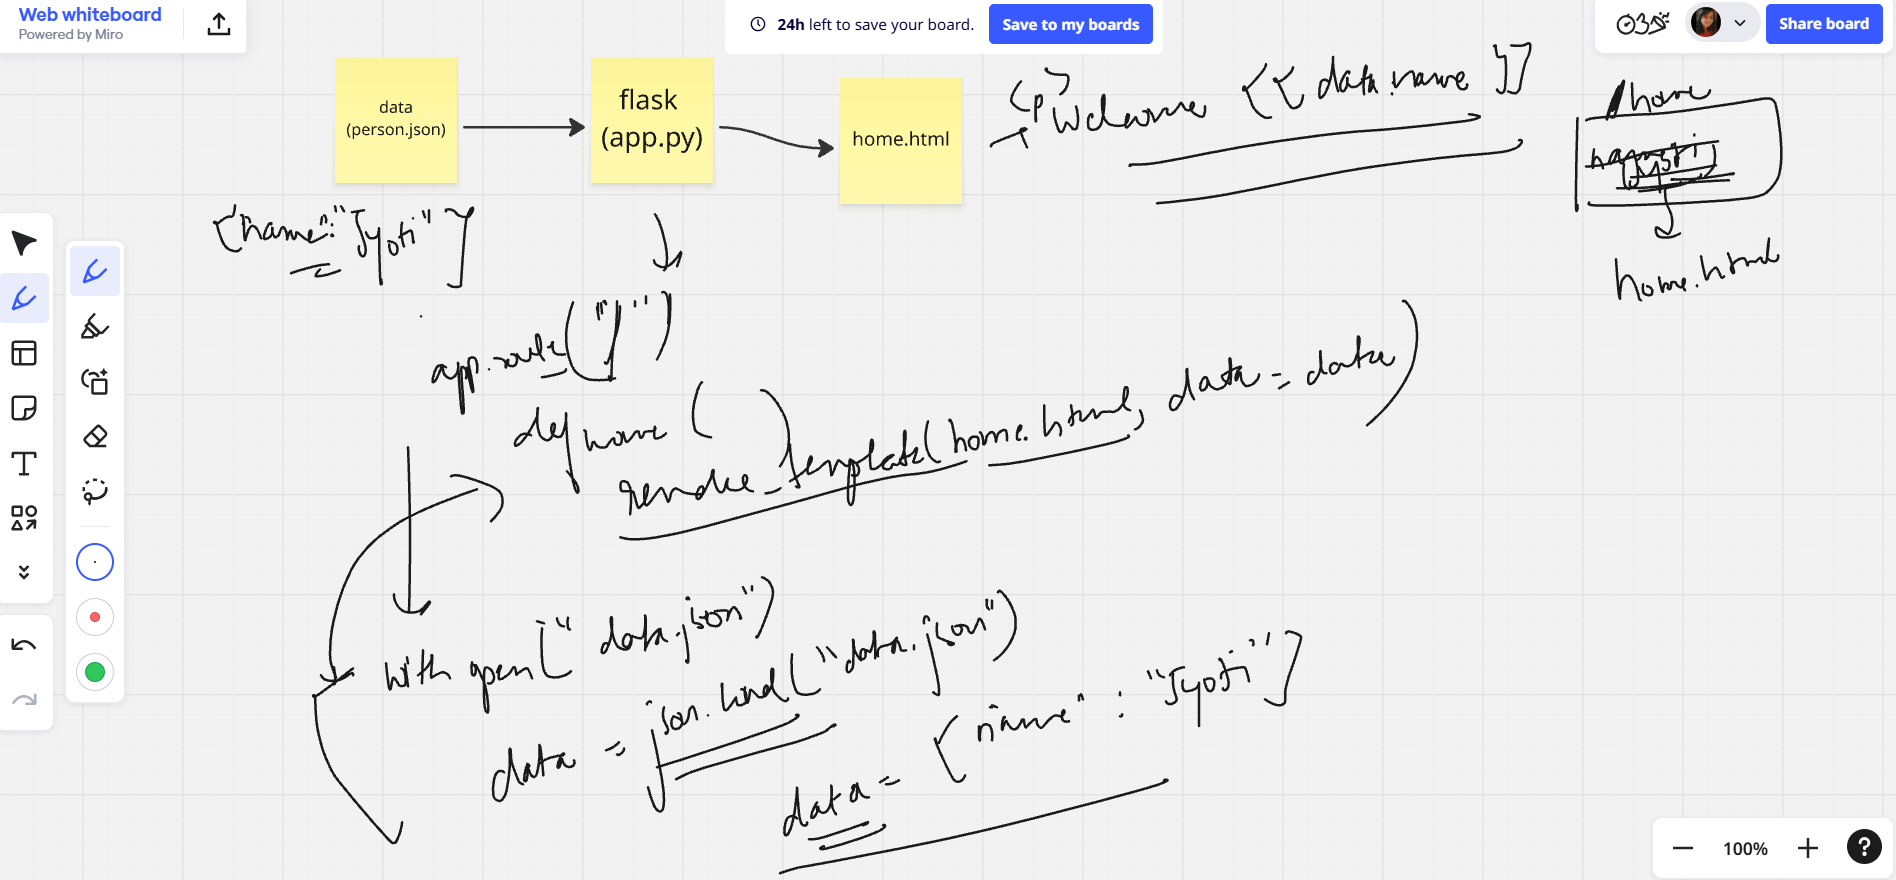 Web whiteboard
Powered by Miro
24h left to save your board.
Save to my boards
Share board
data
(person.json)
flask
(app.py)
home.html
<p> Welcome {{ data.name }}
/home
home.html
{"name":"Jyoti"}
app.route("/")
def home ( )
render_template(home.html, data = data)
with open("data.json")
data = json.load("data.json")
data = {"name" : "Jyoti"}
100%